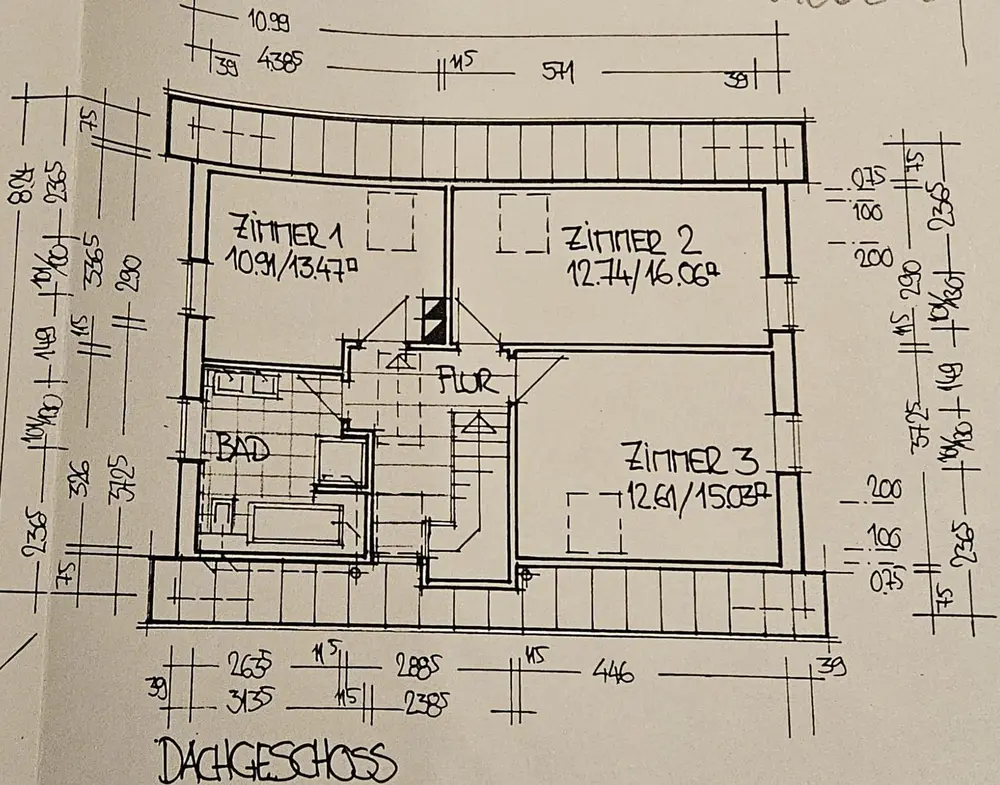 10.99
39 438⁵ 11⁵ 571 39
75
824
236⁵
101/100
149
101/100
236⁵
336⁵
11⁵
326
75
290
312⁵
ZIMMER 1
10.91/13.47□
ZIMMER 2
12.74/16.06□
FLUR
BAD
ZIMMER 3
12.61/15.03□
075
100
200
200
100
075
75
290
11⁵
372⁵
75
236⁵
101/130
149
101/100
236⁵
39 263⁵ 11⁵ 288⁵ 11⁵ 446 39
313⁵ 11⁵ 238⁵
DACHGESCHOSS